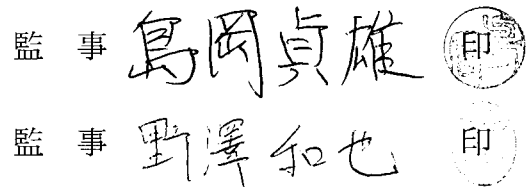 監 事 島岡貞雄 印
監 事 野澤和也 印